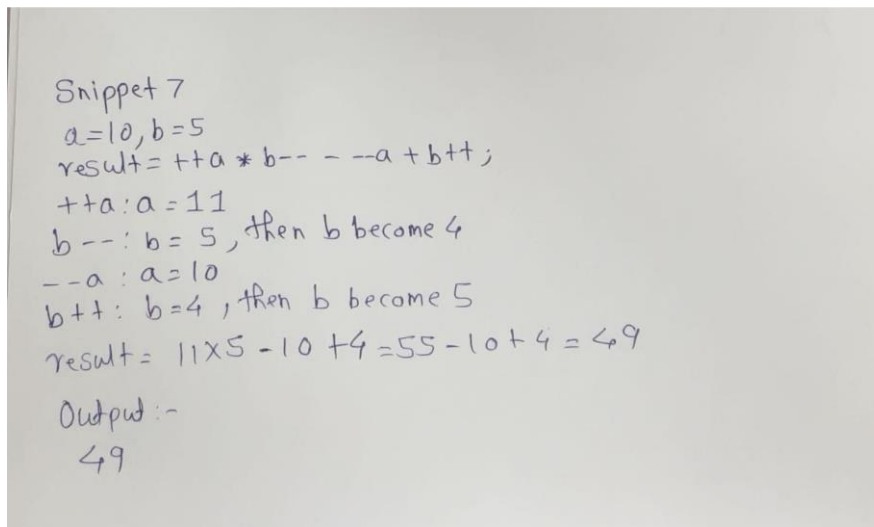 Snippet 7
a=10, b=5
result= ++a * b-- - --a + b++;
++a: a = 11
b--: b= 5, then b become 4
--a : a=10
b++: b=4, then b become 5
result= 11×5 -10 +4 =55-10+4 = 49
Output :-
49